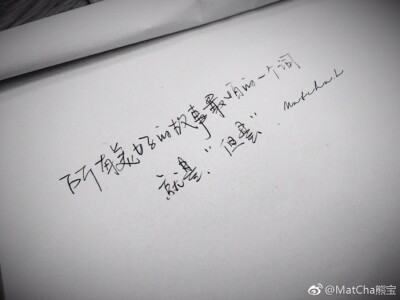 所有美好的故事最烦的一个词
就是“但是”. Matcha.L
@MatCha熊宝